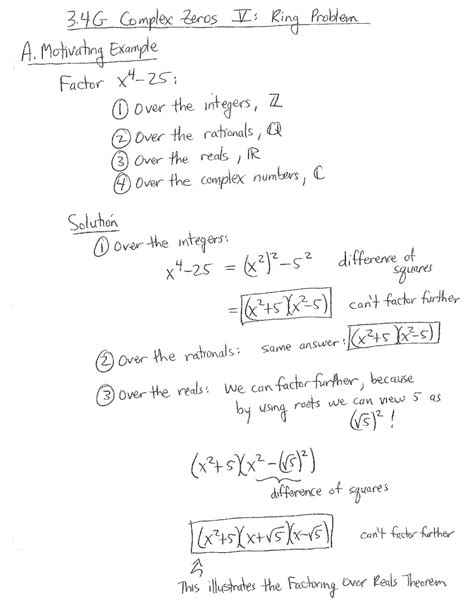 3.4G Complex Zeros V: Ring Problem
A. Motivating Example
Factor x⁴-25:
① Over the integers, ℤ
② Over the rationals, ℚ
③ Over the reals, ℝ
④ Over the complex numbers, ℂ
Solution
① Over the integers:
x⁴-25 = (x²)²-5² difference of squares
= (x²+5)(x²-5) can't factor further
② Over the rationals: same answer: (x²+5)(x²-5)
③ Over the reals: We can factor further, because
by using roots we can view 5 as
(√5)²!
(x²+5)(x²-(√5)²)
difference of squares
(x²+5)(x+√5)(x-√5) can't factor further
This illustrates the Factoring Over Reals Theorem